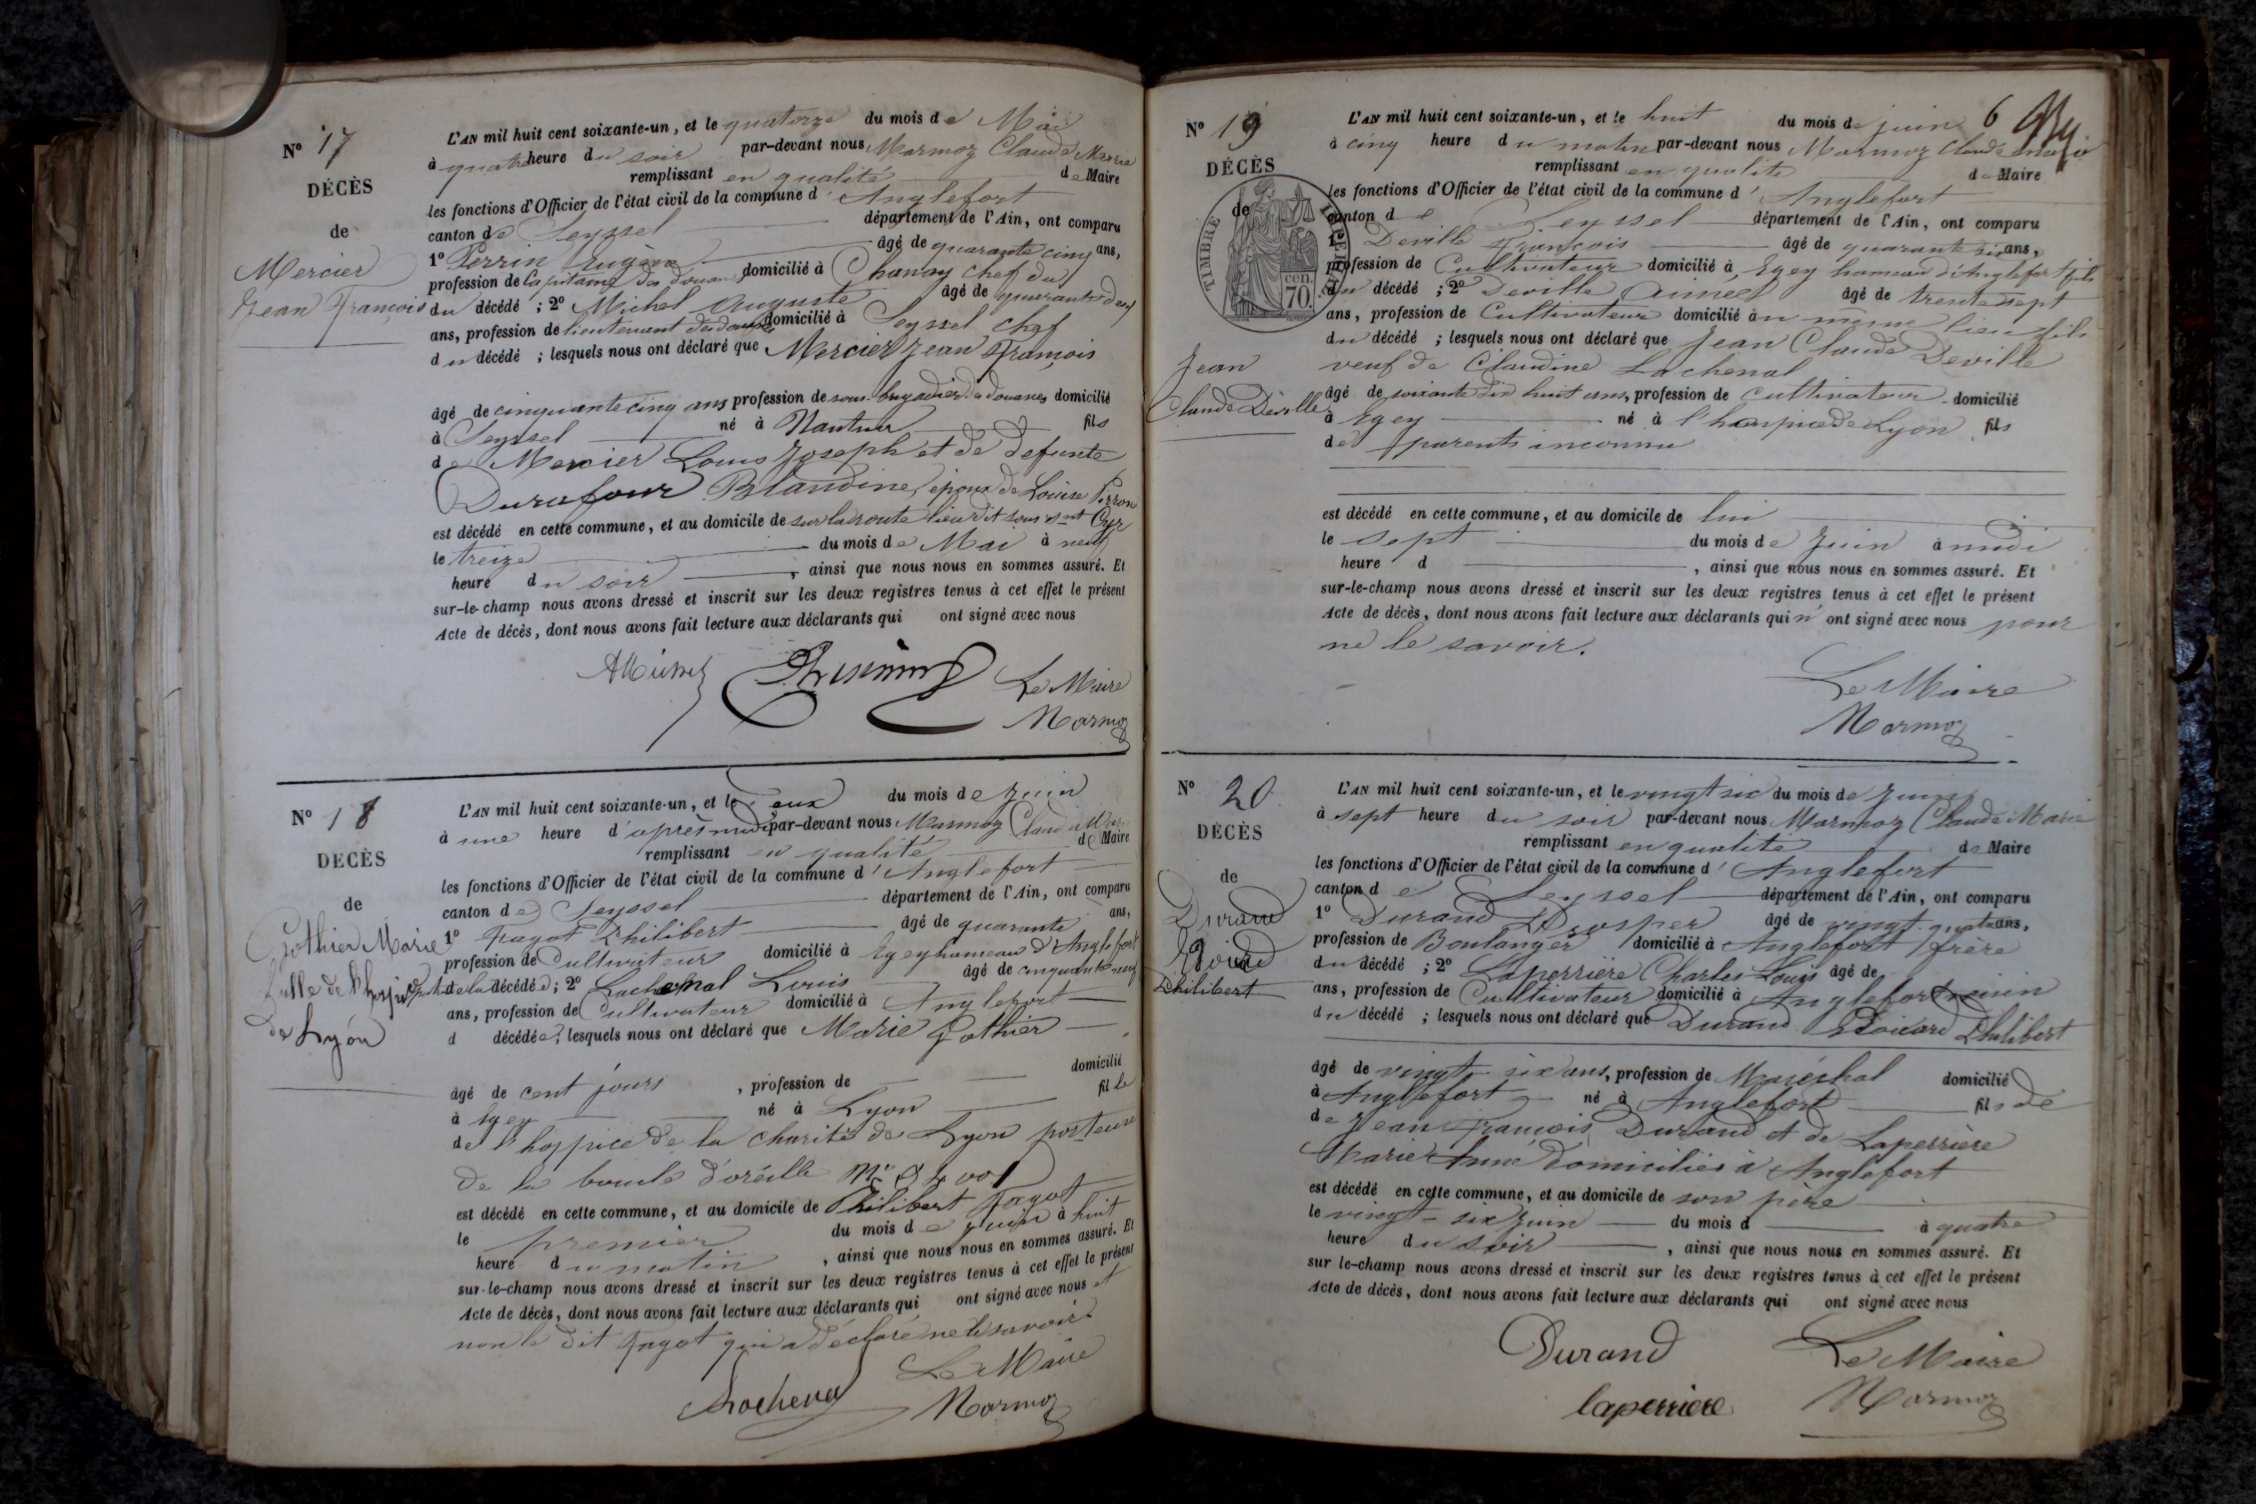 N° 17
DÉCÈS
de
Mercier
Jean François
L'AN mil huit cent soixante-un, et le quatorze du mois de Mai
à quatre heure du soir par-devant nous Marmoz Claude Marie
remplissant en qualité de Maire
les fonctions d'Officier de l'état civil de la commune d'Anglefort
canton de Seyssel département de l'Ain, ont comparu
1° Perrin Eugène âgé de quarante cinq ans,
profession de Capitaine des douanes domicilié à Chanay chef du
du décédé ; 2° Michel Auguste âgé de quarante deux
ans, profession de lieutenant des douanes domicilié à Seyssel chef
du décédé ; lesquels nous ont déclaré que Mercier Jean François
âgé de cinquante cinq ans profession de sous brigadier des douanes domicilié
à Seyssel né à Nantua fils
de Mercier Louis Joseph et de defunte
Durafour Blandine, époux de Louise Perron
est décédé en cette commune, et au domicile de sur la route lieu dit sous Cyr
le treize du mois de Mai à neuf
heure du soir, ainsi que nous nous en sommes assuré. Et
sur-le-champ nous avons dressé et inscrit sur les deux registres tenus à cet effet le présent
Acte de décès, dont nous avons fait lecture aux déclarants qui ont signé avec nous
AMichel
Le Maire
Marmoz
N° 18
DÉCÈS
de
Gothier Marie
fille de l'hospice
de Lyon
L'AN mil huit cent soixante-un, et le deux du mois de juin
à une heure d'après midi par-devant nous Marmoz Claude Marie
remplissant en qualité de Maire
les fonctions d'Officier de l'état civil de la commune d'Anglefort
canton de Seyssel département de l'Ain, ont comparu
1° Fagot Philibert âgé de quarante ans,
profession de Cultivateur domicilié à Egey hameau d'Anglefort
de la décédée ; 2° Lachenal Louis âgé de cinquante neuf
ans, profession de Cultivateur domicilié à Anglefort
d décédée, lesquels nous ont déclaré que Marie Gothier
âgé de cent jours, profession de domicilié
à Egey né à Lyon fille
de l'hospice de la charité de Lyon porteuse
de la boucle d'oreille N°
est décédé en cette commune, et au domicile de Philibert Fagot
le premier du mois de juin à huit
heure du matin, ainsi que nous nous en sommes assuré. Et
sur-le-champ nous avons dressé et inscrit sur les deux registres tenus à cet effet le présent
Acte de décès, dont nous avons fait lecture aux déclarants qui ont signé avec nous et
non le dit Fagot qui a déclaré ne le savoir.
Lachenal
Le Maire
Marmoz
6
N° 19
DÉCÈS
de
TIMBRE IMPERIAL
70 cen.
Jean
Claude Deville
L'AN mil huit cent soixante-un, et le huit du mois de juin
à cinq heure du matin par-devant nous Marmoz Claude Marie
remplissant en qualité de Maire
les fonctions d'Officier de l'état civil de la commune d'Anglefort
canton de Seyssel département de l'Ain, ont comparu
1° Deville François âgé de quarante six ans,
profession de Cultivateur domicilié à Egey hameau d'Anglefort fils
du décédé ; 2° Deville Aimé âgé de trente sept
ans, profession de Cultivateur domicilié au même lieu fils
du décédé ; lesquels nous ont déclaré que Jean Claude Deville
veuf de Claudine Lachenal
âgé de soixante dix huit ans, profession de Cultivateur domicilié
à Egey né à l'hospice de Lyon fils
de parents inconnu
est décédé en cette commune, et au domicile de lui
le sept du mois de Juin à midi
heure d, ainsi que nous nous en sommes assuré. Et
sur-le-champ nous avons dressé et inscrit sur les deux registres tenus à cet effet le présent
Acte de décès, dont nous avons fait lecture aux déclarants qui n'ont signé avec nous pour
ne le savoir.
Le Maire
Marmoz
N° 20
DÉCÈS
de
Durand
Edouard
Philibert
L'AN mil huit cent soixante-un, et le vingt six du mois de Juin
à sept heure du soir par-devant nous Marmoz Claude Marie
remplissant en qualité de Maire
les fonctions d'Officier de l'état civil de la commune d'Anglefort
canton de Seyssel département de l'Ain, ont comparu
1° Durand Prosper âgé de vingt quatre ans,
profession de Boulanger domicilié à Anglefort frère
du décédé ; 2° Laperrière Charles Louis âgé de
ans, profession de Cultivateur domicilié à Anglefort voisin
du décédé ; lesquels nous ont déclaré que Durand Edouard Philibert
âgé de vingt six ans, profession de Maréchal domicilié
à Anglefort né à Anglefort fils de
de Jean François Durand et de Laperrière
Marie Anne domiciliés à Anglefort
est décédé en cette commune, et au domicile de son père
le vingt six Juin du mois d à quatre
heure du soir, ainsi que nous nous en sommes assuré. Et
sur le-champ nous avons dressé et inscrit sur les deux registres tenus à cet effet le présent
Acte de décès, dont nous avons fait lecture aux déclarants qui ont signé avec nous
Durand
Le Maire
laperriere
Marmoz